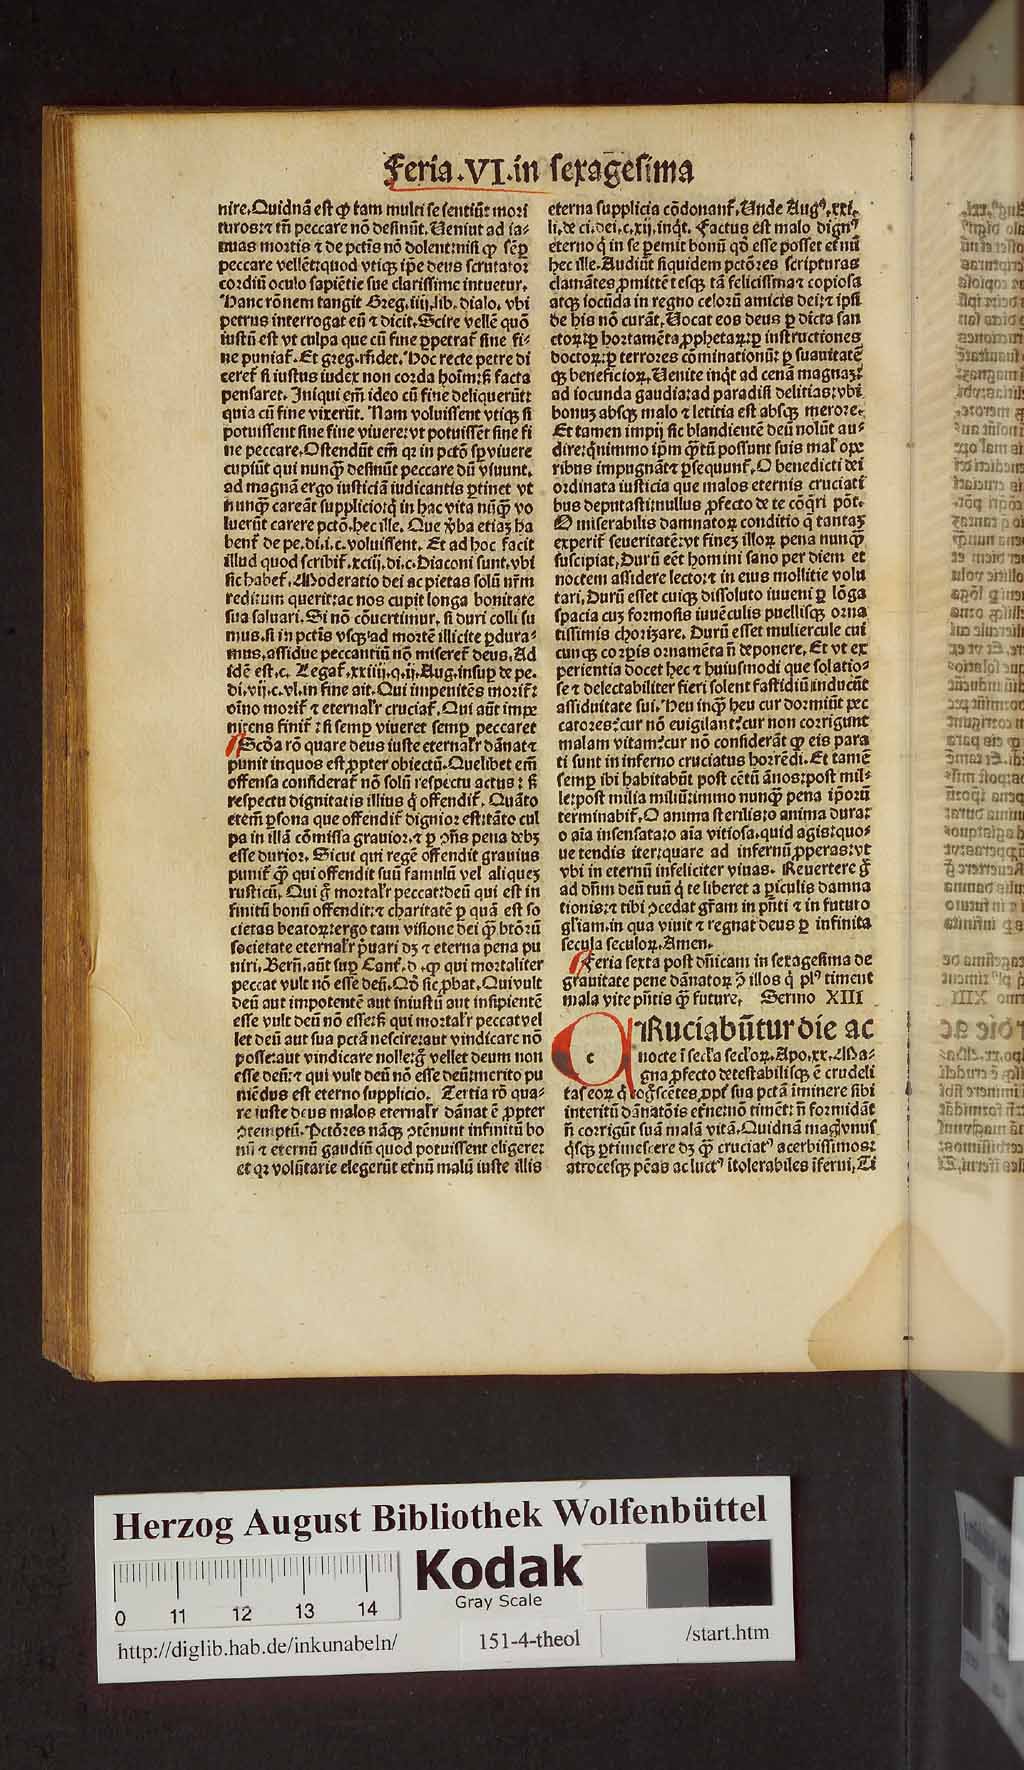 Feria.VI.in sexagesima
nire.Quidnā est ꝙ tam multi se sentiūt mori
turos:⁊ tn̄ peccare nō desinūt.Ueniūt ad ia⸗
nuas mortis ⁊ de pctīs nō dolent:nisi ꝙ sēꝑ
peccare vellēt:quod vtiqꝫ ip̄e deus scrutator
cordiū oculo sapiētie sue clarissime intuetur.
Hanc rōnem tangit Greg.iiij.lib.dialo.vbi
petrus interrogat eū ⁊ dicit.Scire vellē quō
iustū est vt culpa que cū fine ꝑpetrat̄ sine fi⸗
ne puniat̄.Et greg.rn̄det.Hoc recte petre di
ceret̄ si iustus iudex non corda hoīm:sꝫ facta
pensaret.Iniqui em̄ ideo cū fine deliquerūt:
quia cū fine vixerūt.Nam voluissent vtiqꝫ si
potuissent sine fine viuere:vt potuissēt sine fi
ne peccare.Ostendūt em̄ qꝛ in pctō sꝑ viuere
cupiūt qui nunqꝫ desinūt peccare dū viuunt.
ad magnā ergo iusticiā iudicantis ꝑtinet vt
nunqꝫ careāt supplicio:q̇ in hac vita nūqꝫ vo
luerūt carere pctō.hec ille.Que v̾ba etiaꝫ ha
bent̄ de pe.di.i.c.voluissent.Et ad hoc facit
illud quod scribit̄.xciij.di.c.Diaconi sunt.vbi
sic habet̄.Moderatio dei ac pietas solū nr̄m
reditum querit:ac nos cupit longa bonitate
sua saluari.Si nō cōuertimur.si duri colli su
mus.si in pctīs vsqꝫ ad mortē illicite ꝑdura⸗
mus.assidue peccantiū nō miseret̄ deus.Ad
idē est.c. Legat̄.xxiiij.q.ij.Aug.insuꝑ de pe.
di.vij.c.vl.in fine ait.Qui impenitēs morit̄:
oīno morit̄ ⁊ eternalr̄ cruciat̄.Qui aūt impe
nitens finit̄:si semꝑ viueret semꝑ peccaret
Scd̄a rō quare deus iuste eternalr̄ dānat ⁊
punit iniquos est ꝓpter obiectū.Quelibet em̄
offensa considerat̄ nō solū respectu actus:sꝫ
respectu dignitatis illius q̇ offendit̄.Quāto
etem̄ ꝑsona que offendit̄ dignior est:tāto cul
pa in illā cōmissa grauior.⁊ ꝑ ꝯn̄s pena debꝫ
esse durior.Sicut qui regē offendit grauius
punit̄ qꝫ qui offendit suū famulū vel aliqueꝫ
rusticū.Qui g̊ mortalr̄ peccat:deū qui est in
finitū bonū offendit:⁊ charitatē ꝑ quā est so
cietas beatoꝝ:ergo tam visione dei qꝫ btōrū
societate eternalr̄ pͥuari dꝫ ⁊ eterna pena pu
niri.Bern̄.aūt suꝑ Cant̄.d .ꝙ qui mortaliter
peccat vult nō esse deū.Qd̄ sic ꝓbat.Qui vult
deū aut impotentē aut iniustū aut insipientē
esse vult deū nō esse:sꝫ qui mortalr̄ peccat vel
let deū aut sua pctā nescire:aut vindicare nō
posse:aut vindicare nolle:g̊ vellet deum non
esse deū:⁊ qui vult deū nō esse deū:merito pu
niēdus est eterno supplicio. Tertia rō qua⸗
re iuste deus malos eternalr̄ dānat ē ꝓpter
ꝯtemptū.Pctōres nāqꝫ ꝯtēnunt infinitū bo
nū ⁊ eternū gaudiū quod potuissent eligere:
et qꝛ volūtarie elegerūt et̾nū malū iuste illis
eterna supplicia cōdonant̄.Unde Augꝰ.xxi.
li.de ci.dei.c.xij.inq̇t.Factus est malo dignꝰ
eterno q̇ in se ꝑemit bonū qd̄ esse posset et̾nū
hec ille.Audiūt siquidem pctōres scripturas
clamātes ꝓmittētesqꝫ tā felicissima ⁊ copiosa
atqꝫ iocūda in regno celorū amicis dei:⁊ ipsi
de his nō curāt.Uocat eos deus ꝑ dicta san
ctoꝝ:ꝑ hortamēta ꝓphetaꝝ:ꝑ instructiones
doctoꝝ:ꝑ terrores cōminationū:ꝑ suauitatē
qꝫ beneficioꝝ.Uenite inq̇t ad cenā magnaꝫ:
ad iocunda gaudia:ad paradisi delitias:vbi
bonuꝫ absqꝫ malo ⁊ letitia est absqꝫ merore.
Et tamen impij sic blandientē deū nolūt au⸗
dire:q̇nimmo ip̄m qꝫtū possunt suis mal̾ oꝑe
ribus impugnāt ⁊ ꝑsequunt̄.O benedicti dei
ordinata iusticia que malos eternis cruciati
bus deputasti:nullus ꝓfecto de te cōq̇ri pōt.
O miserabilis damnatoꝝ conditio q̇ tantaꝫ
experit̄ seueritatē:vt fineꝫ illoꝝ pena nunqꝫ
suscipiat.Durū eēt homini sano per diem et
noctem assidere lecto:⁊ in eius mollitie volu
tari.Durū esset cuiqꝫ dissoluto iuueni ꝑ lōga
spacia cuꝫ formosis iuuēculis puellisqꝫ orna
tissimis chorizare.Durū esset muliercule cui
cunqꝫ corꝑis ornamēta n̄ deponere.Et vt ex
perientia docet hec ⁊ huiusmodi que solatio⸗
se ⁊ delectabiliter fieri solent fastidiū inducūt
assiduitate sui.Heu inqꝫ heu cur dormiūt pec
catores:cur nō euigilant:cur non corrigunt
malam vitam:cur nō considerāt ꝙ eis para
ti sunt in inferno cruciatus horrēdi.Et tamē
semꝑ ibi habitabūt post cētū ānos:post mil⸗
le:post milia miliū:immo nunqꝫ pena ip̄orū
terminabit̄.O anima sterilis:o anima dura:
o aīa insensata:o aīa vitiosa.quid agis:quo⸗
ue tendis iter:quare ad infernū ꝓperas:vt
vbi in eternū infeliciter viuas. Reuertere g̊
ad dn̄m deū tuū q̇ te liberet a ꝑiculis damna
tionis:⁊ tibi ꝯcedat gr̄am in pn̄ti ⁊ in futuro
gl̄iam.in qua viuit ⁊ regnat deus ꝑ infinita
secula seculoꝝ.Amen.
Feria sexta post dn̄icam in sexagesima de
grauitate pene dānatoꝝ ꝯ̄ illos q̇ plꝰ timent
mala vite pn̄tis qꝫ future. Sermo XIII
CRuciabūtur die ac
nocte ī secl̄a secl̄oꝝ.Apo.xx.Ma⸗
gna ꝓfecto detestabilisqꝫ ē crudeli
tas eoꝝ q̇ ꝯgͦscētes ꝓpt̾ sua pctā īminere sibi
interitū dānatōis et̾ne:nō timēt:n̄ formidāt
n̄ corrigūt suā malā vitā.Quidnā magͥ vnus
q̇sqꝫ ꝑtimescere dꝫ qꝫ cruciatꝰ acerbissimos:
atrocesqꝫ pēas ac luctꝰ ītolerabiles īferni.Ti
Herzog August Bibliothek Wolfenbüttel
Kodak
Gray Scale
0 11 12 13 14
http://diglib.hab.de/inkunabeln/
151-4-theol
/start.htm